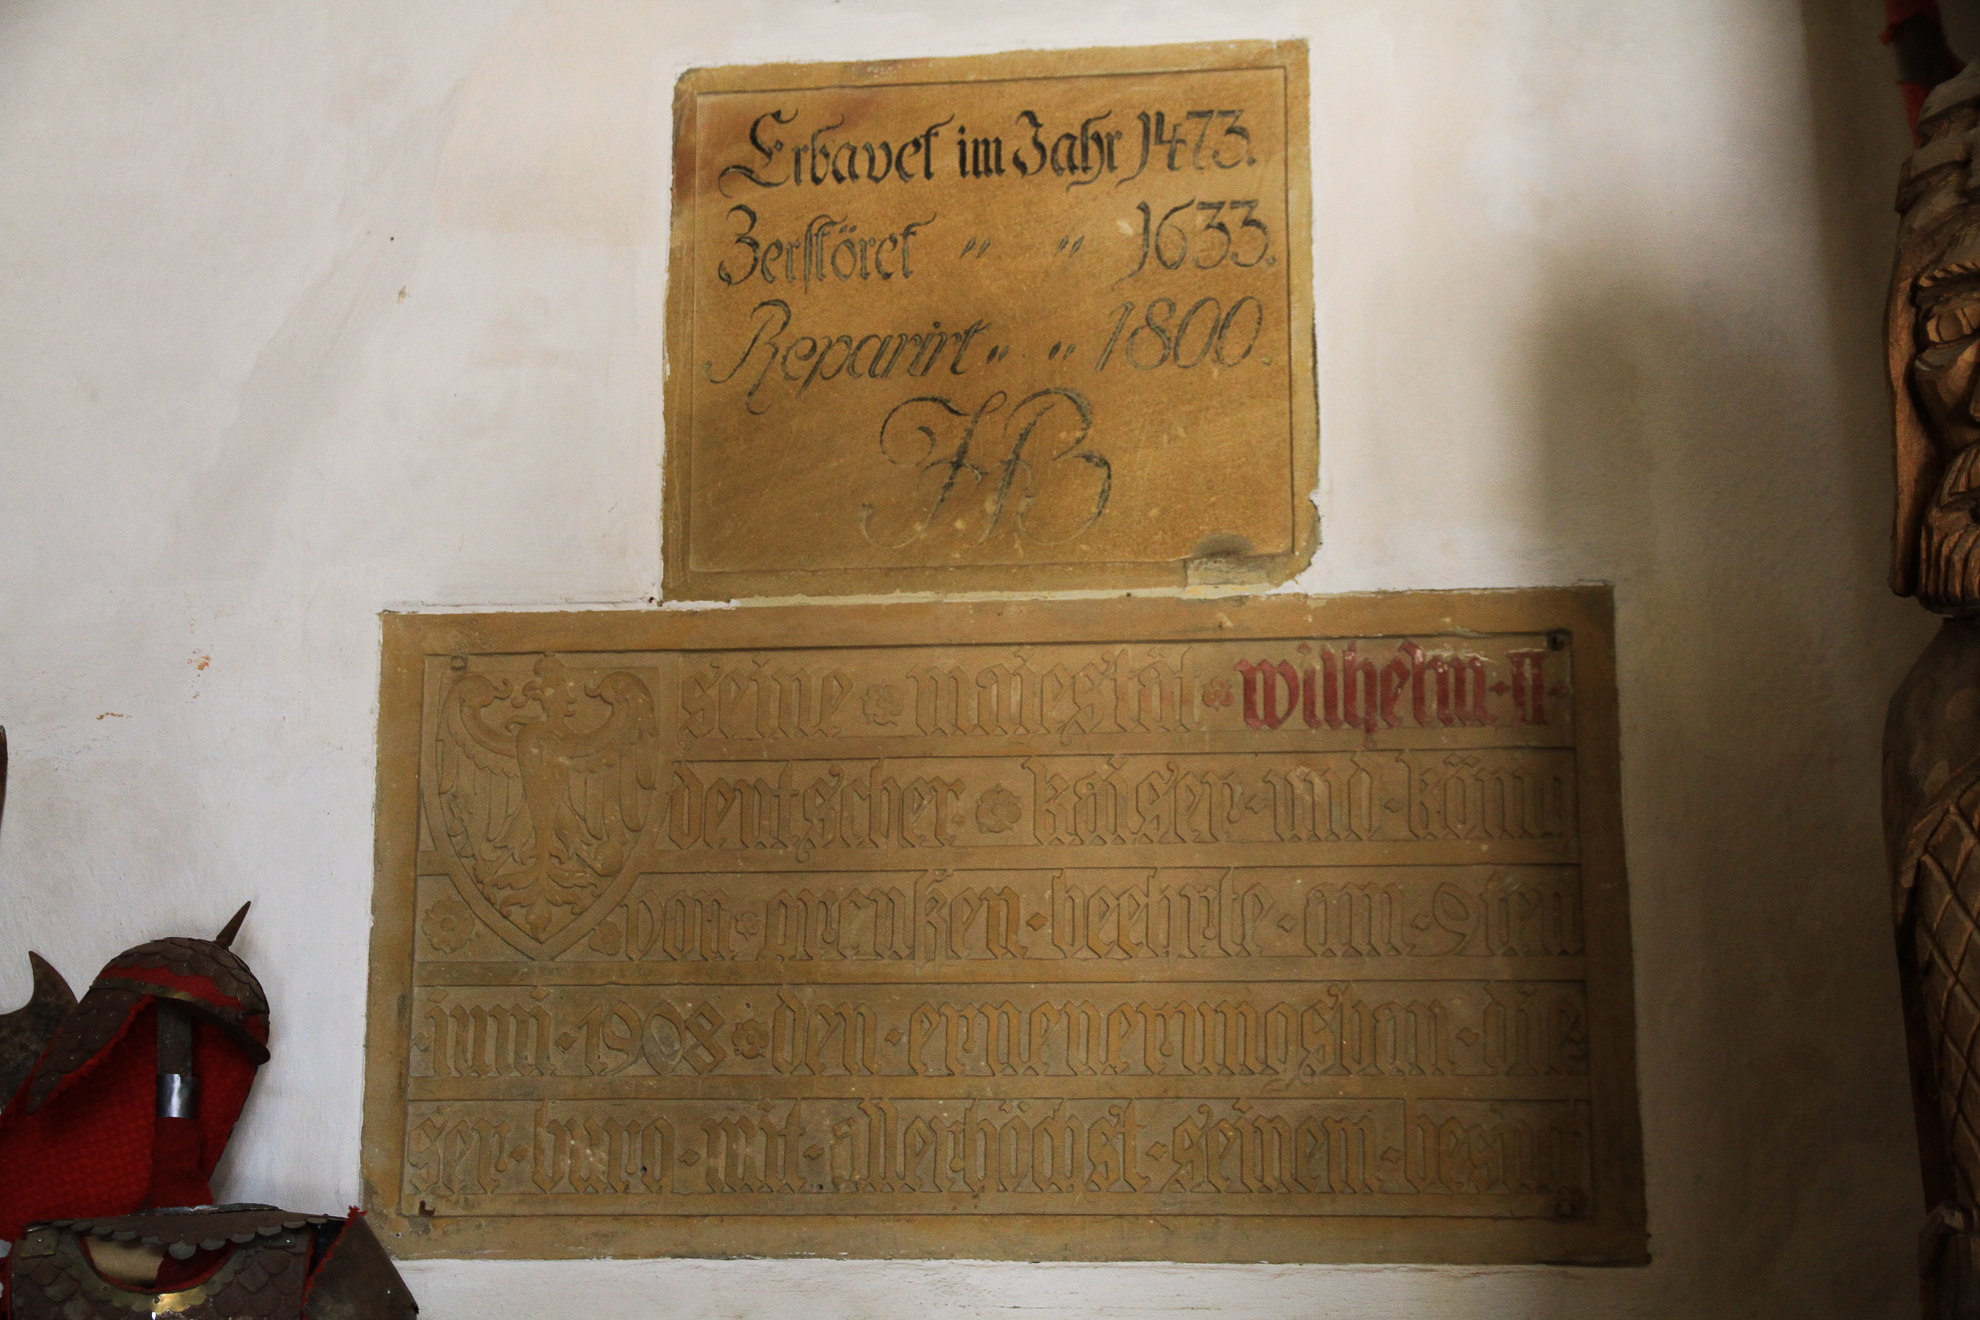 Erbavet im Jahr 1473.
Zerstöret " " 1633.
Reparirt " " 1800.
HB
seine maiestät · wilhelm · II ·
deutscher kaiser · und · köni
von preußen · beehrte · am · 9ten
· iuni · 1908 den · erneuerungsbau · die
ser · burg · mit · allerhöchst · seinem · besuch